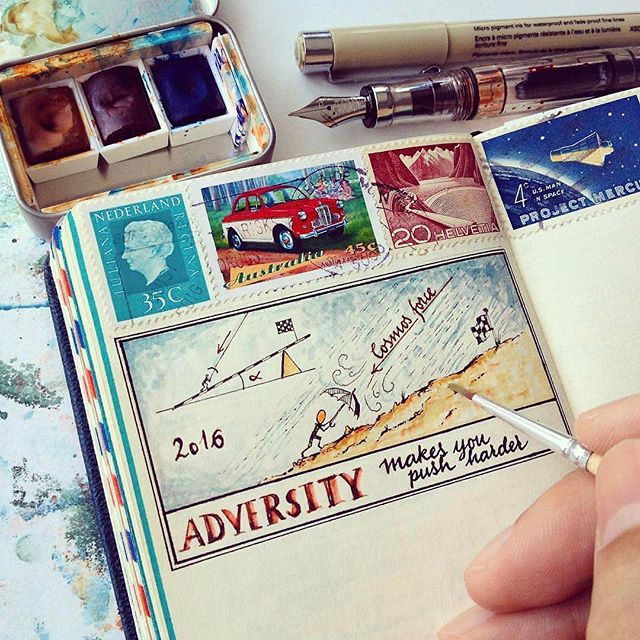 Micro pigment ink for waterproof and fade proof fine lines
Encre à micro pigments résistante à l'eau et à la lumière
écriture fine
NEDERLAND
JULIANA
REGINA
35C
RISK
Australia
45c
20 HELVETIA
4¢
U.S. MAN
IN SPACE
PROJECT MERCU
α
Cosmos force
2016
ADVERSITY
makes you
push harder